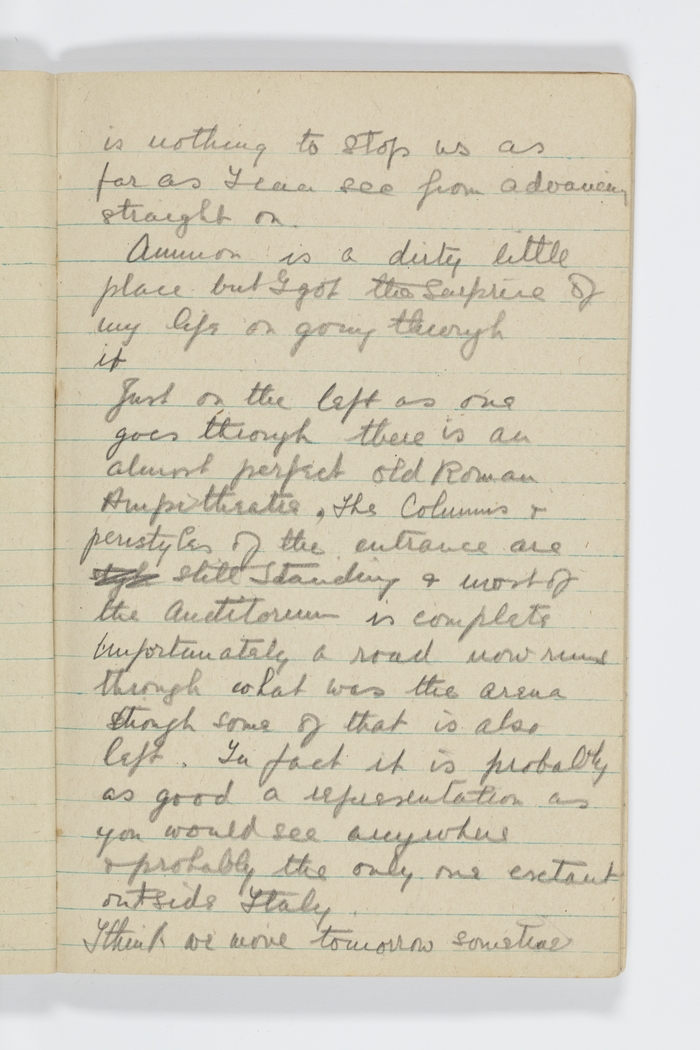 is nothing to stop us as
far as I can see from advancing
straight on.
Ammon is a dirty little
place but I got the surprise of
my life on going through
it
Just on the left as one
goes through there is an
almost perfect old Roman
Ampitheatre, The Columns &
peristyles of the entrance are
still Standing & most of
the Auditorium is complete
Unfortunately a road now runs
through what was the arena
though some of that is also
left. In fact it is probably
as good a representation as
you would see anywhere
& probably the only one extant
outside Italy.
I think we move tomorrow sometime